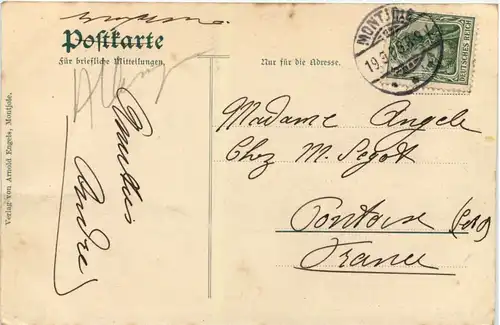 Postkarte
Für briefliche Mitteilungen.
Nur für die Adresse.
MONTJOIE
19.3.
DEUTSCHES REICH
Madame Angele
Chez M. Segot
Pontoise
France
Amitiés
André
Verlag von Arnold Engels, Montjoie.